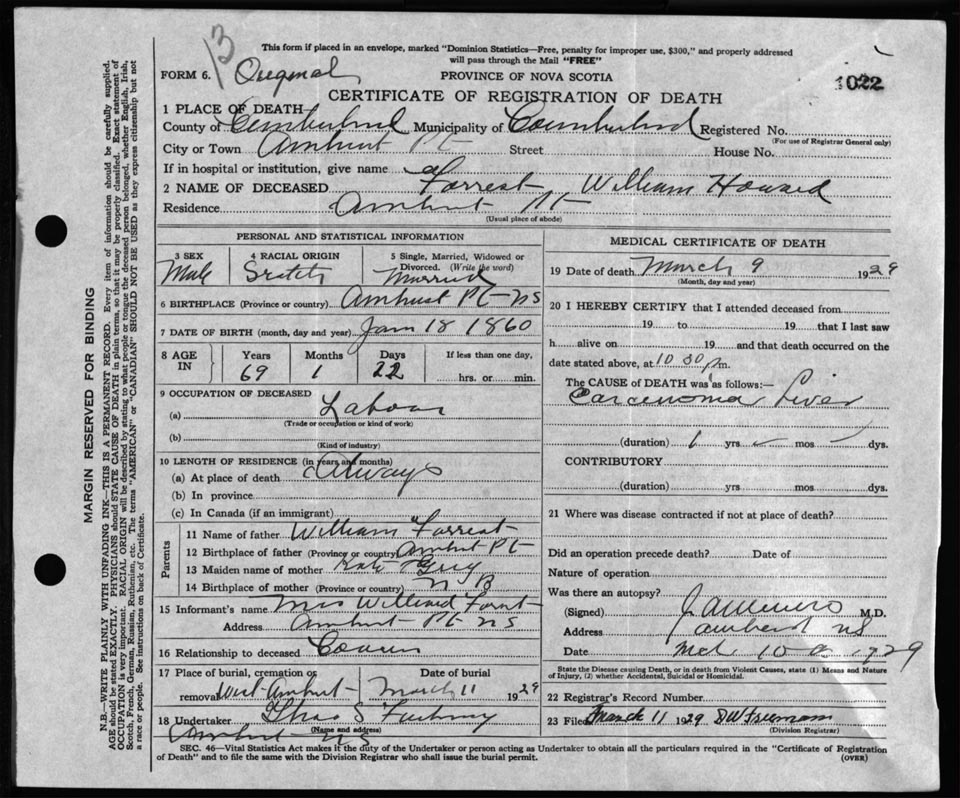 13
This form if placed in an envelope, marked "Dominion Statistics—Free, penalty for improper use, $300," and properly addressed
will pass through the Mail "FREE"
FORM 6. Original PROVINCE OF NOVA SCOTIA 1022
CERTIFICATE OF REGISTRATION OF DEATH
1 PLACE OF DEATH—
County of Cumberland Municipality of Cumberland Registered No.
(For use of Registrar General only)
City or Town Amherst Pt Street House No.
If in hospital or institution, give name of
2 NAME OF DECEASED Forrest William Howard
Residence Amherst Pt
(Usual place of abode)
PERSONAL AND STATISTICAL INFORMATION
3 SEX 4 RACIAL ORIGIN 5 Single, Married, Widowed or
Divorced. (Write the word)
Male Scotch Married
6 BIRTHPLACE (Province or country) Amherst Pt NS
7 DATE OF BIRTH (month, day and year) Jan 18 1860
8 AGE IN Years Months Days If less than one day,
69 1 22 hrs. or min.
9 OCCUPATION OF DECEASED
(a) Labour
(Trade or occupation or kind of work)
(b)
(Kind of industry)
10 LENGTH OF RESIDENCE (in years and months)
(a) At place of death Always
(b) In province
(c) In Canada (if an immigrant)
Parents
11 Name of father William Forrest
12 Birthplace of father (Province or country) Amherst Pt
13 Maiden name of mother Kate Grey
14 Birthplace of mother (Province or country) N B
15 Informant's name Mrs Willard Forrest
Address Amherst Pt NS
16 Relationship to deceased Cousin
17 Place of burial, cremation or Date of burial
removal West Amherst March 11 1929
18 Undertaker Thos S
(Name and address)
Amherst NS
MEDICAL CERTIFICATE OF DEATH
19 Date of death March 9 1929
(Month, day and year)
20 I HEREBY CERTIFY that I attended deceased from
19 to 19 that I last saw
h alive on 19 and that death occurred on the
date stated above, at 10 30 pm.
The CAUSE of DEATH was as follows:—
Carcinoma Liver
(duration) 1 yrs – mos – dys.
CONTRIBUTORY
(duration) yrs mos dys.
21 Where was disease contracted if not at place of death?
Did an operation precede death? Date of
Nature of operation
Was there an autopsy?
(Signed) M.D.
Address Amherst NS
Date Mch 10 1929
State the Disease causing Death, or in death from Violent Causes, state (1) Means and Nature
of Injury, (2) whether Accidental, Suicidal or Homicidal.
22 Registrar's Record Number
23 Filed March 11 1929 D W Freeman
(Division Registrar)
SEC. 46—Vital Statistics Act makes it the duty of the Undertaker or person acting as Undertaker to obtain all the particulars required in the "Certificate of Registration
of Death" and to file the same with the Division Registrar who shall issue the burial permit. (OVER)
MARGIN RESERVED FOR BINDING
N.B.—WRITE PLAINLY WITH UNFADING INK—THIS IS A PERMANENT RECORD. Every item of information should be carefully supplied.
AGE should be stated EXACTLY. PHYSICIANS should STATE CAUSE OF DEATH in plain terms, so that it may be properly classified. Exact statement of
OCCUPATION is very important. RACIAL ORIGIN will be described by stating to what people or tongue the deceased person belonged, whether English, Irish,
Scotch, French, German, Russian, Ruthenian, etc. The terms "AMERICAN" or "CANADIAN" SHOULD NOT BE USED as they express citizenship but not
a race or people. See instructions on back of Certificate.